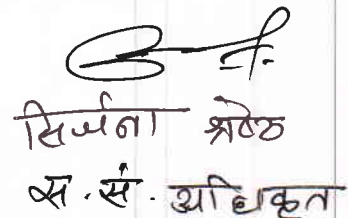 सिर्जना श्रेष्ठ
स. सं. अधिकृत